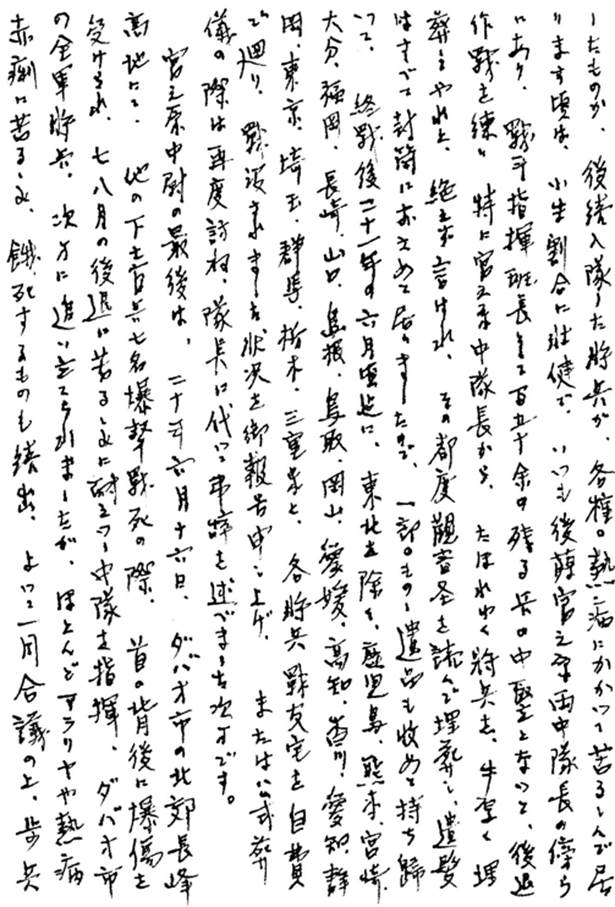 したものが、後続入隊した将兵が、各種の熱病にかかって苦るしんで居
ります頃は、小生割合に壮健で、いつも後藤宮之原両中隊長の傍ら
にあり、戦斗指揮班長として百五十余の残る兵の中堅となって、後退
作戦を練り、特に宮之原中隊長から、たほれゆく将兵を、手厚く埋
葬してやれと、絶えず言はれ、その都度観音圣を読んで埋葬し、遺髪
はすべて封筒におさめて居りましたので、一部のもの遺品も収めて持ち帰
って、終戦後二十一年の六月頃迄に、東北を除く、鹿児島、熊本、宮崎、
大分、福岡、長崎、山口、島根、鳥取、岡山、愛媛、高知、香川、愛知、静
岡、東京、埼玉、群馬、栃木、三重等と、各将兵戦友宅を自費
で廻り、戦没されました状況を御報告申し上げ、または公式葬
儀の際は再度訪ね、隊長に代って弔辞を述べました次才です。
宮之原中尉の最後は、二十年六月十六日、ダバオ市の北郊長峰
高地にて、他の下士官兵七名爆撃戦死の際、首の背後に爆傷を
受けられ、七八月の後退に苦るしみに耐えつつ中隊を指揮、ダバオ市
の全軍将兵、次才に追い立てられましたが、ほとんどマラリヤや熱病
赤痢に苦るしみ、餓死するものも続出、よって一同合議の上、歩兵